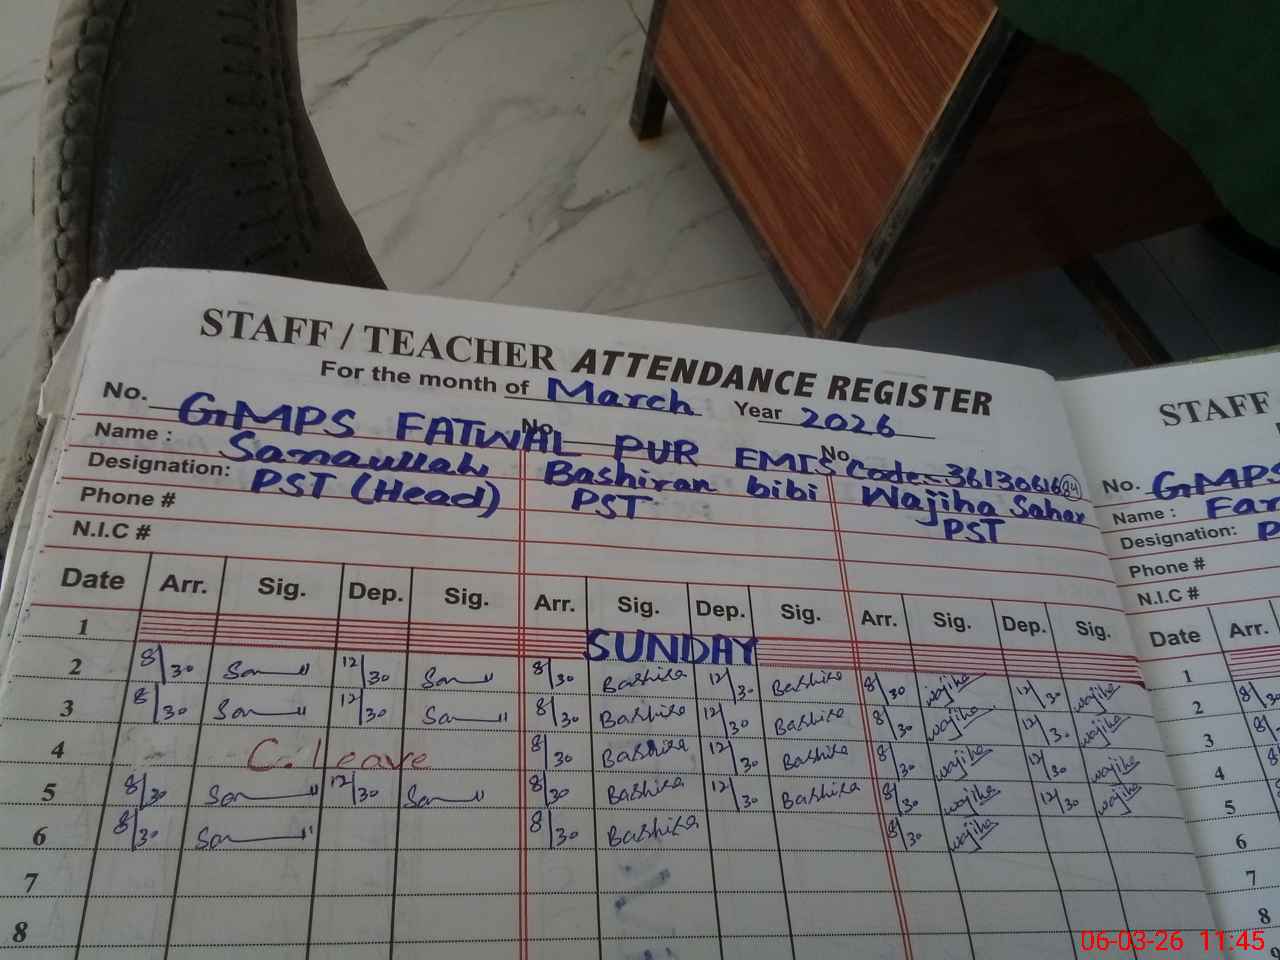 STAFF / TEACHER ATTENDANCE REGISTER
For the month of March Year 2026
No. GMPS FATWAL PUR EMIS Code:- 36130616 84
No. No.
Name : Sanaullah Bashiran bibi Wajiha Sahar
Designation: PST (Head) PST PST
Phone #
N.I.C #
Date Arr. Sig. Dep. Sig. Arr. Sig. Dep. Sig. Arr. Sig. Dep. Sig.
1 SUNDAY
2 8/30 San 12/30 San 8/30 Bashira 12/30 Bashira 8/30 wajiha 12/30 wajiha
3 8/30 San 12/30 San 8/30 Bashira 12/30 Bashira 8/30 wajiha 12/3. wajiha
4 C. leave 8/30 Bashira 12/30 Bashira 8/30 wajiha 12/30 wajiha
5 8/30 San 12/30 San 8/30 Bashira 12/30 Bashira 8/30 wajiha 12/30 wajiha
6 8/30 San 8/30 Bashira 8/30 wajiha
7
8
STAFF
No. GMPS
Name : Far
Designation: P
Phone #
N.I.C #
Date Arr.
1
2 8/30
3
4
5
6
7
8
06-03-26 11:45